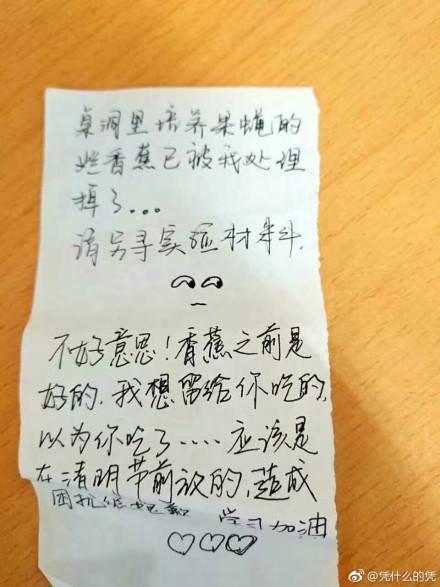 桌洞里培养果蝇的
烂香蕉已被我处理
掉了...
请另寻实验材料.
不好意思!香蕉之前是
好的.我想留给你吃的,
以为你吃了.....应该是
在清明节前放的,造成
困扰 抱歉 学习加油
@凭什么的凭